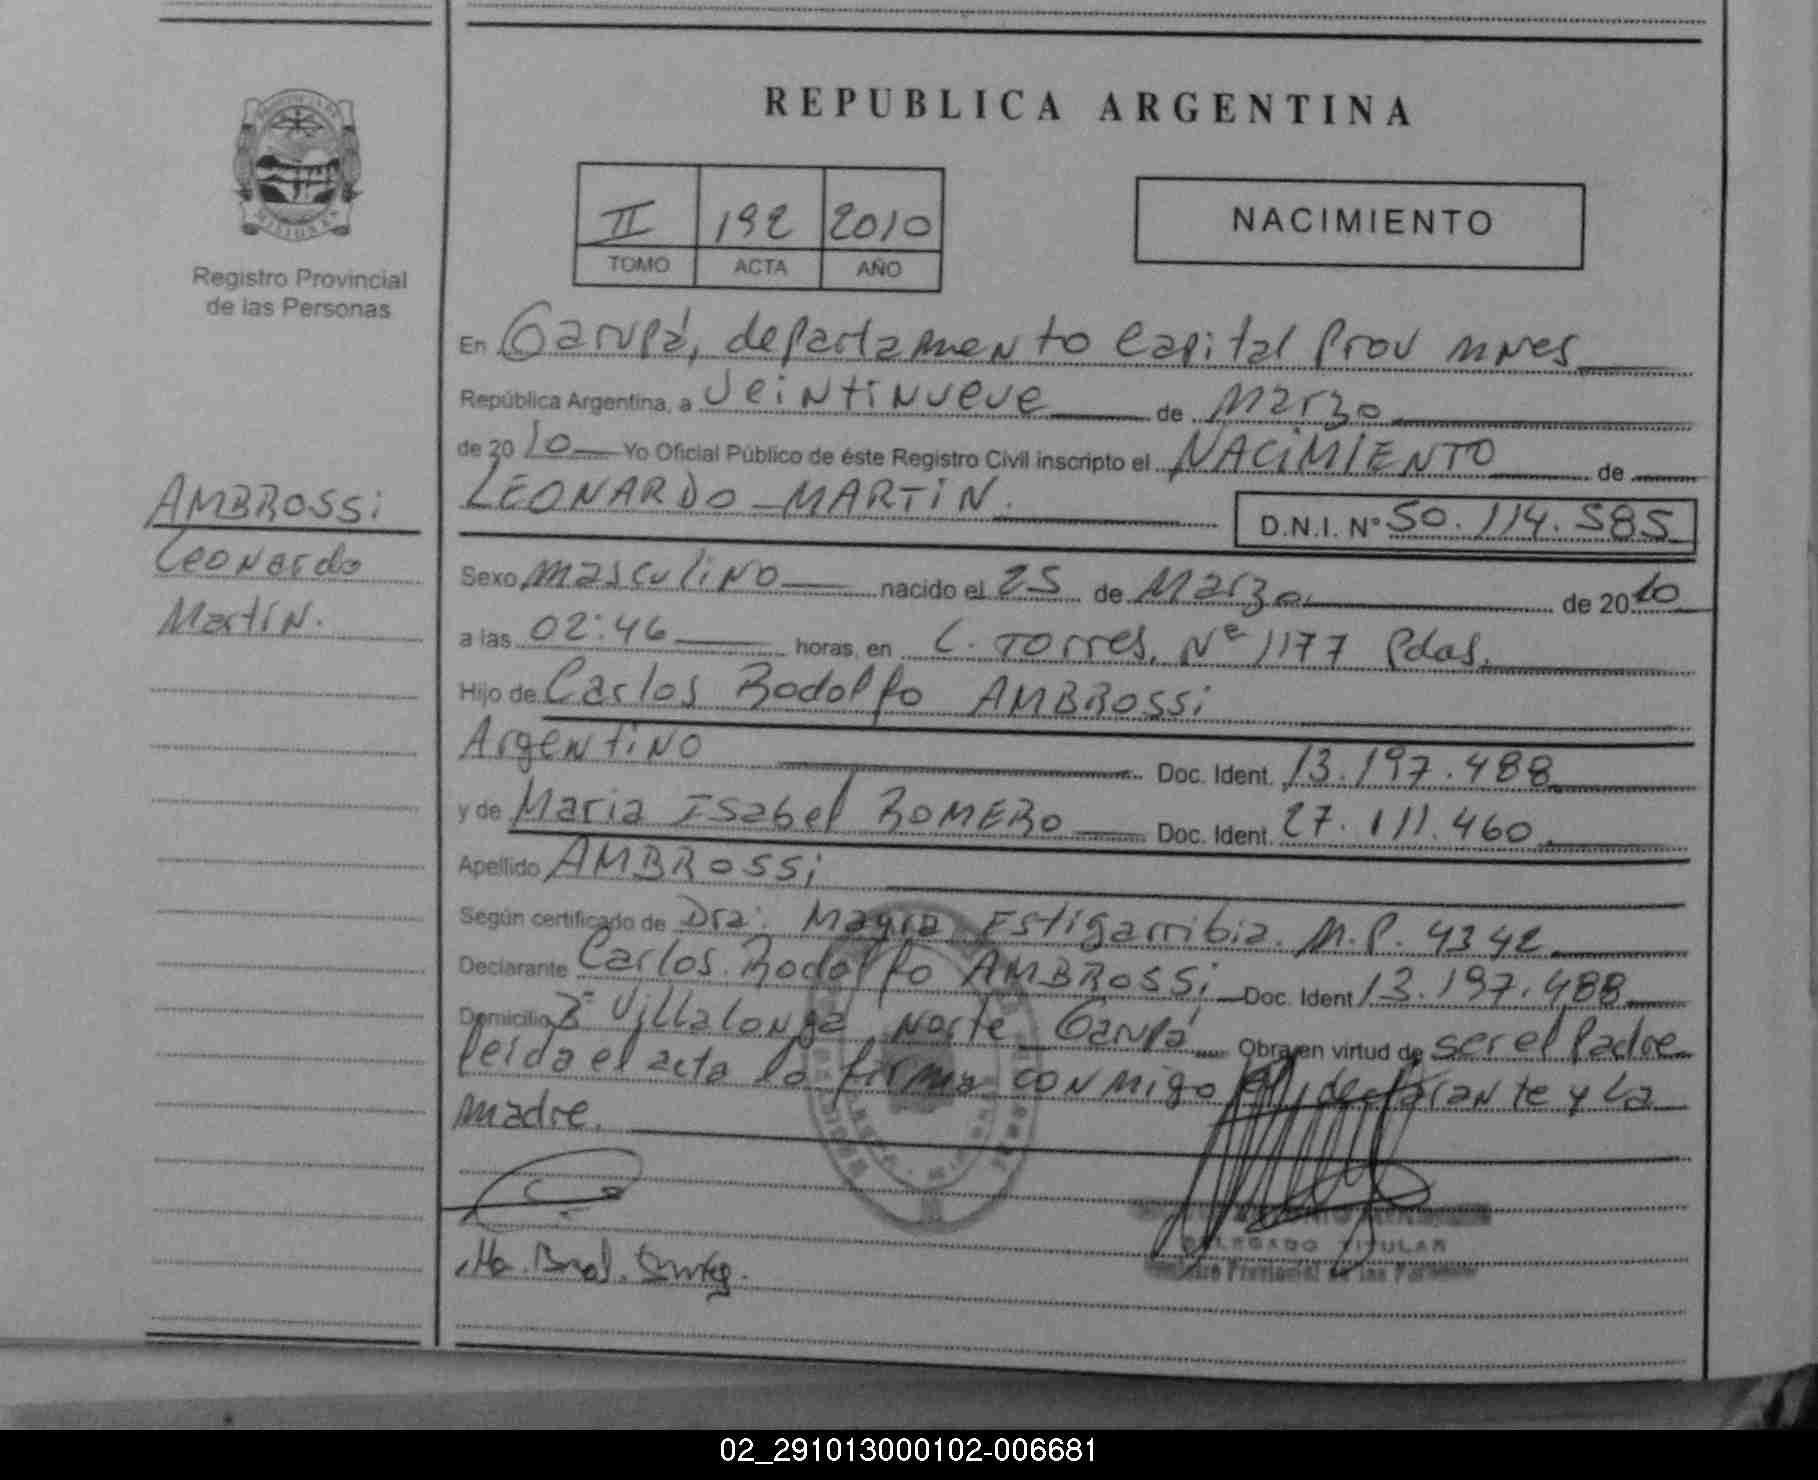 REPUBLICA ARGENTINA
II 192 2010
TOMO ACTA AÑO
NACIMIENTO
Registro Provincial
de las Personas
AMBROSSi
Leonardo
Martín.
En Garupá, departamento Capital Prov Mnes
República Argentina, a Veintinueve de Marzo
de 2010 Yo Oficial Público de éste Registro Civil inscripto el NACIMIENTO de
LEONARDO MARTIN. D.N.I. N° 50.114.585
Sexo masculino nacido el 25 de Marzo de 2010
a las 02:46 horas, en C. Torres. Nº 1177 Pdas.
Hijo de Carlos Rodolfo AMBROSSi
Argentino Doc. Ident. 13.197.488
y de Maria Isabel ROMERO Doc. Ident. 27.111.460
Apellido AMBROSSi
Según certificado de Dra. Mayra Estigarribia. M.P. 4342
Declarante Carlos Rodolfo AMBROSSi Doc. Ident 13.197.488
Domicilio Bº Villalonga Norte Garupá Obra en virtud de ser el Padre
leida el acta la firma conmigo el declarante y La
madre.
DELEGADO TITULAR
Registro Provincial de las Personas
02_291013000102-006681